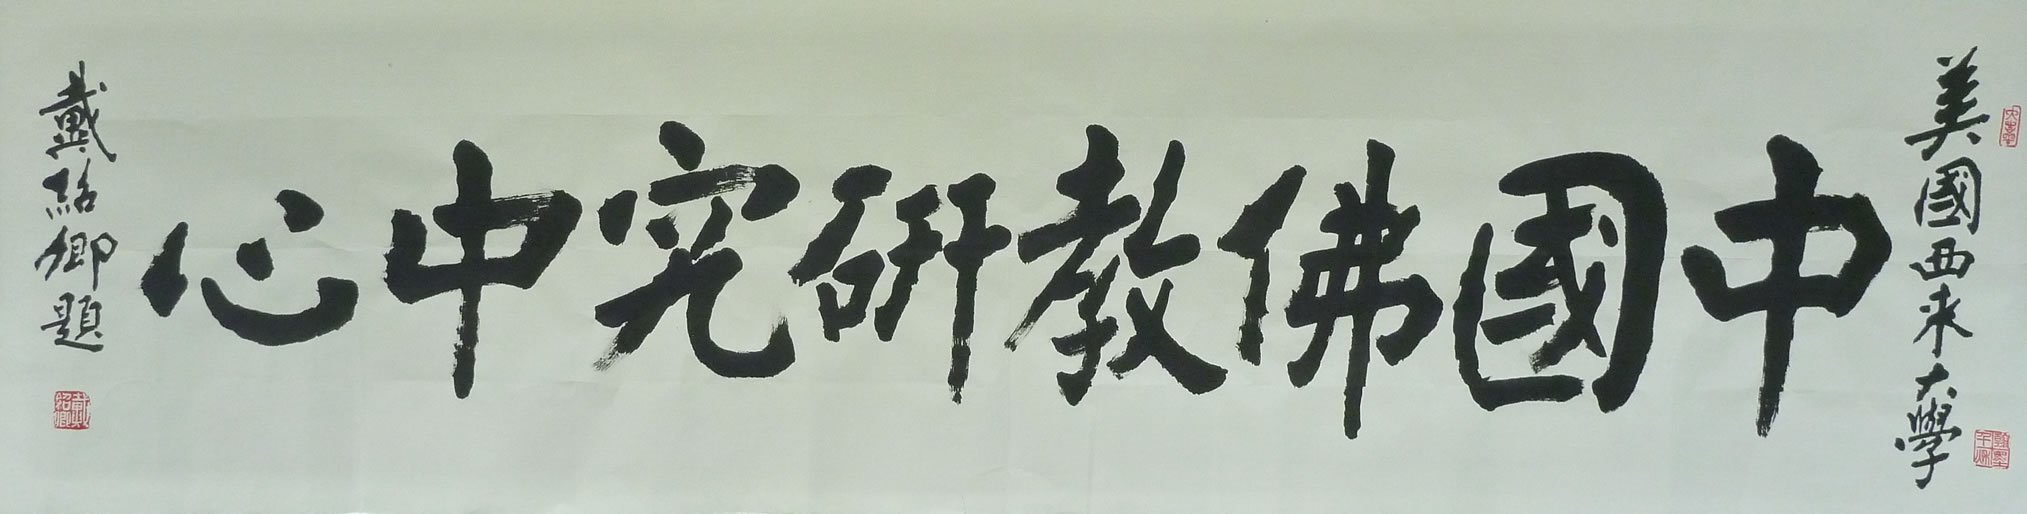 美國西來大學
中國佛教研究中心
戴紹卿題